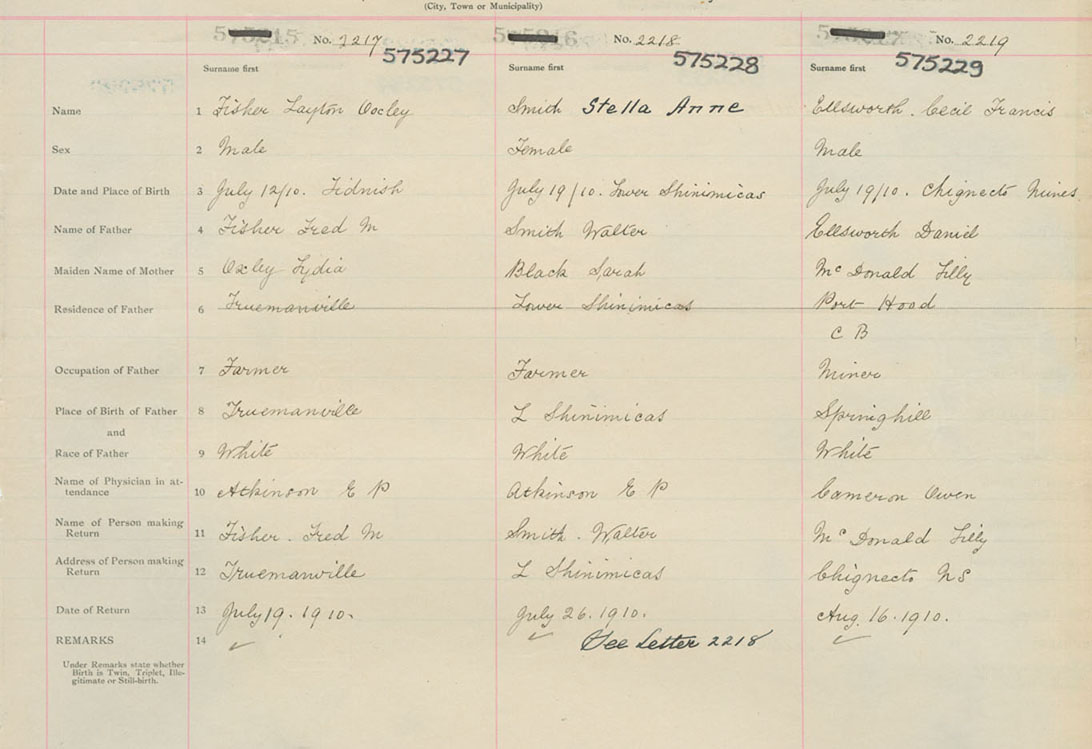 (City, Town or Municipality)
No. 2217 No. 2218 No. 2219
575227 575228 575229
Surname first Surname first Surname first
Name 1 Fisher Layton Oxley Smith Stella Anne Ellsworth. Cecil Francis
Sex 2 Male Female Male
Date and Place of Birth 3 July 12/10. Tidnish July 19/10. Lower Shinimicas July 19/10. Chignecto Mines
Name of Father 4 Fisher Fred M Smith Walter Ellsworth Daniel
Maiden Name of Mother 5 Oxley Lydia Black Sarah McDonald Lilly
Residence of Father 6 Truemanville Lower Shinimicas Port Hood
C B
Occupation of Father 7 Farmer Farmer Miner
Place of Birth of Father 8 Truemanville L Shinimicas Springhill
and
Race of Father 9 White White White
Name of Physician in at-
tendance 10 Atkinson E P Atkinson E P Cameron Owen
Name of Person making
Return 11 Fisher. Fred M Smith. Walter McDonald Lilly
Address of Person making
Return 12 Truemanville L Shinimicas Chignecto NS
Date of Return 13 July 19. 1910. July 26. 1910. Aug. 16. 1910.
REMARKS 14 See Letter 2218
Under Remarks state whether
Birth is Twin, Triplet, Ille-
gitimate or Still-birth.